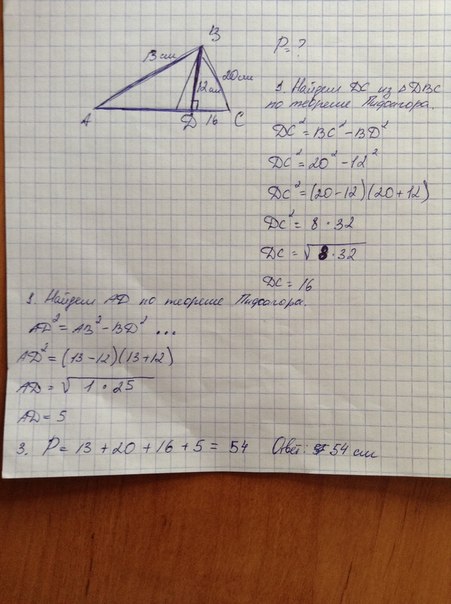 B
13 см
20 см
12 см
A
D
16
C
P = ?
1. Найдем DC из △DBC
по теореме Пифагора.
DC² = BC² - BD²
DC² = 20² - 12²
DC² = (20-12)(20+12)
DC² = 8 · 32
DC = √8·32
DC = 16
1. Найдем AD по теореме Пифагора.
AD² = AB² - BD² ...
AD² = (13-12)(13+12)
AD = √1·25
AD = 5
3. P = 13 + 20 + 16 + 5 = 54 Ответ: 54 см